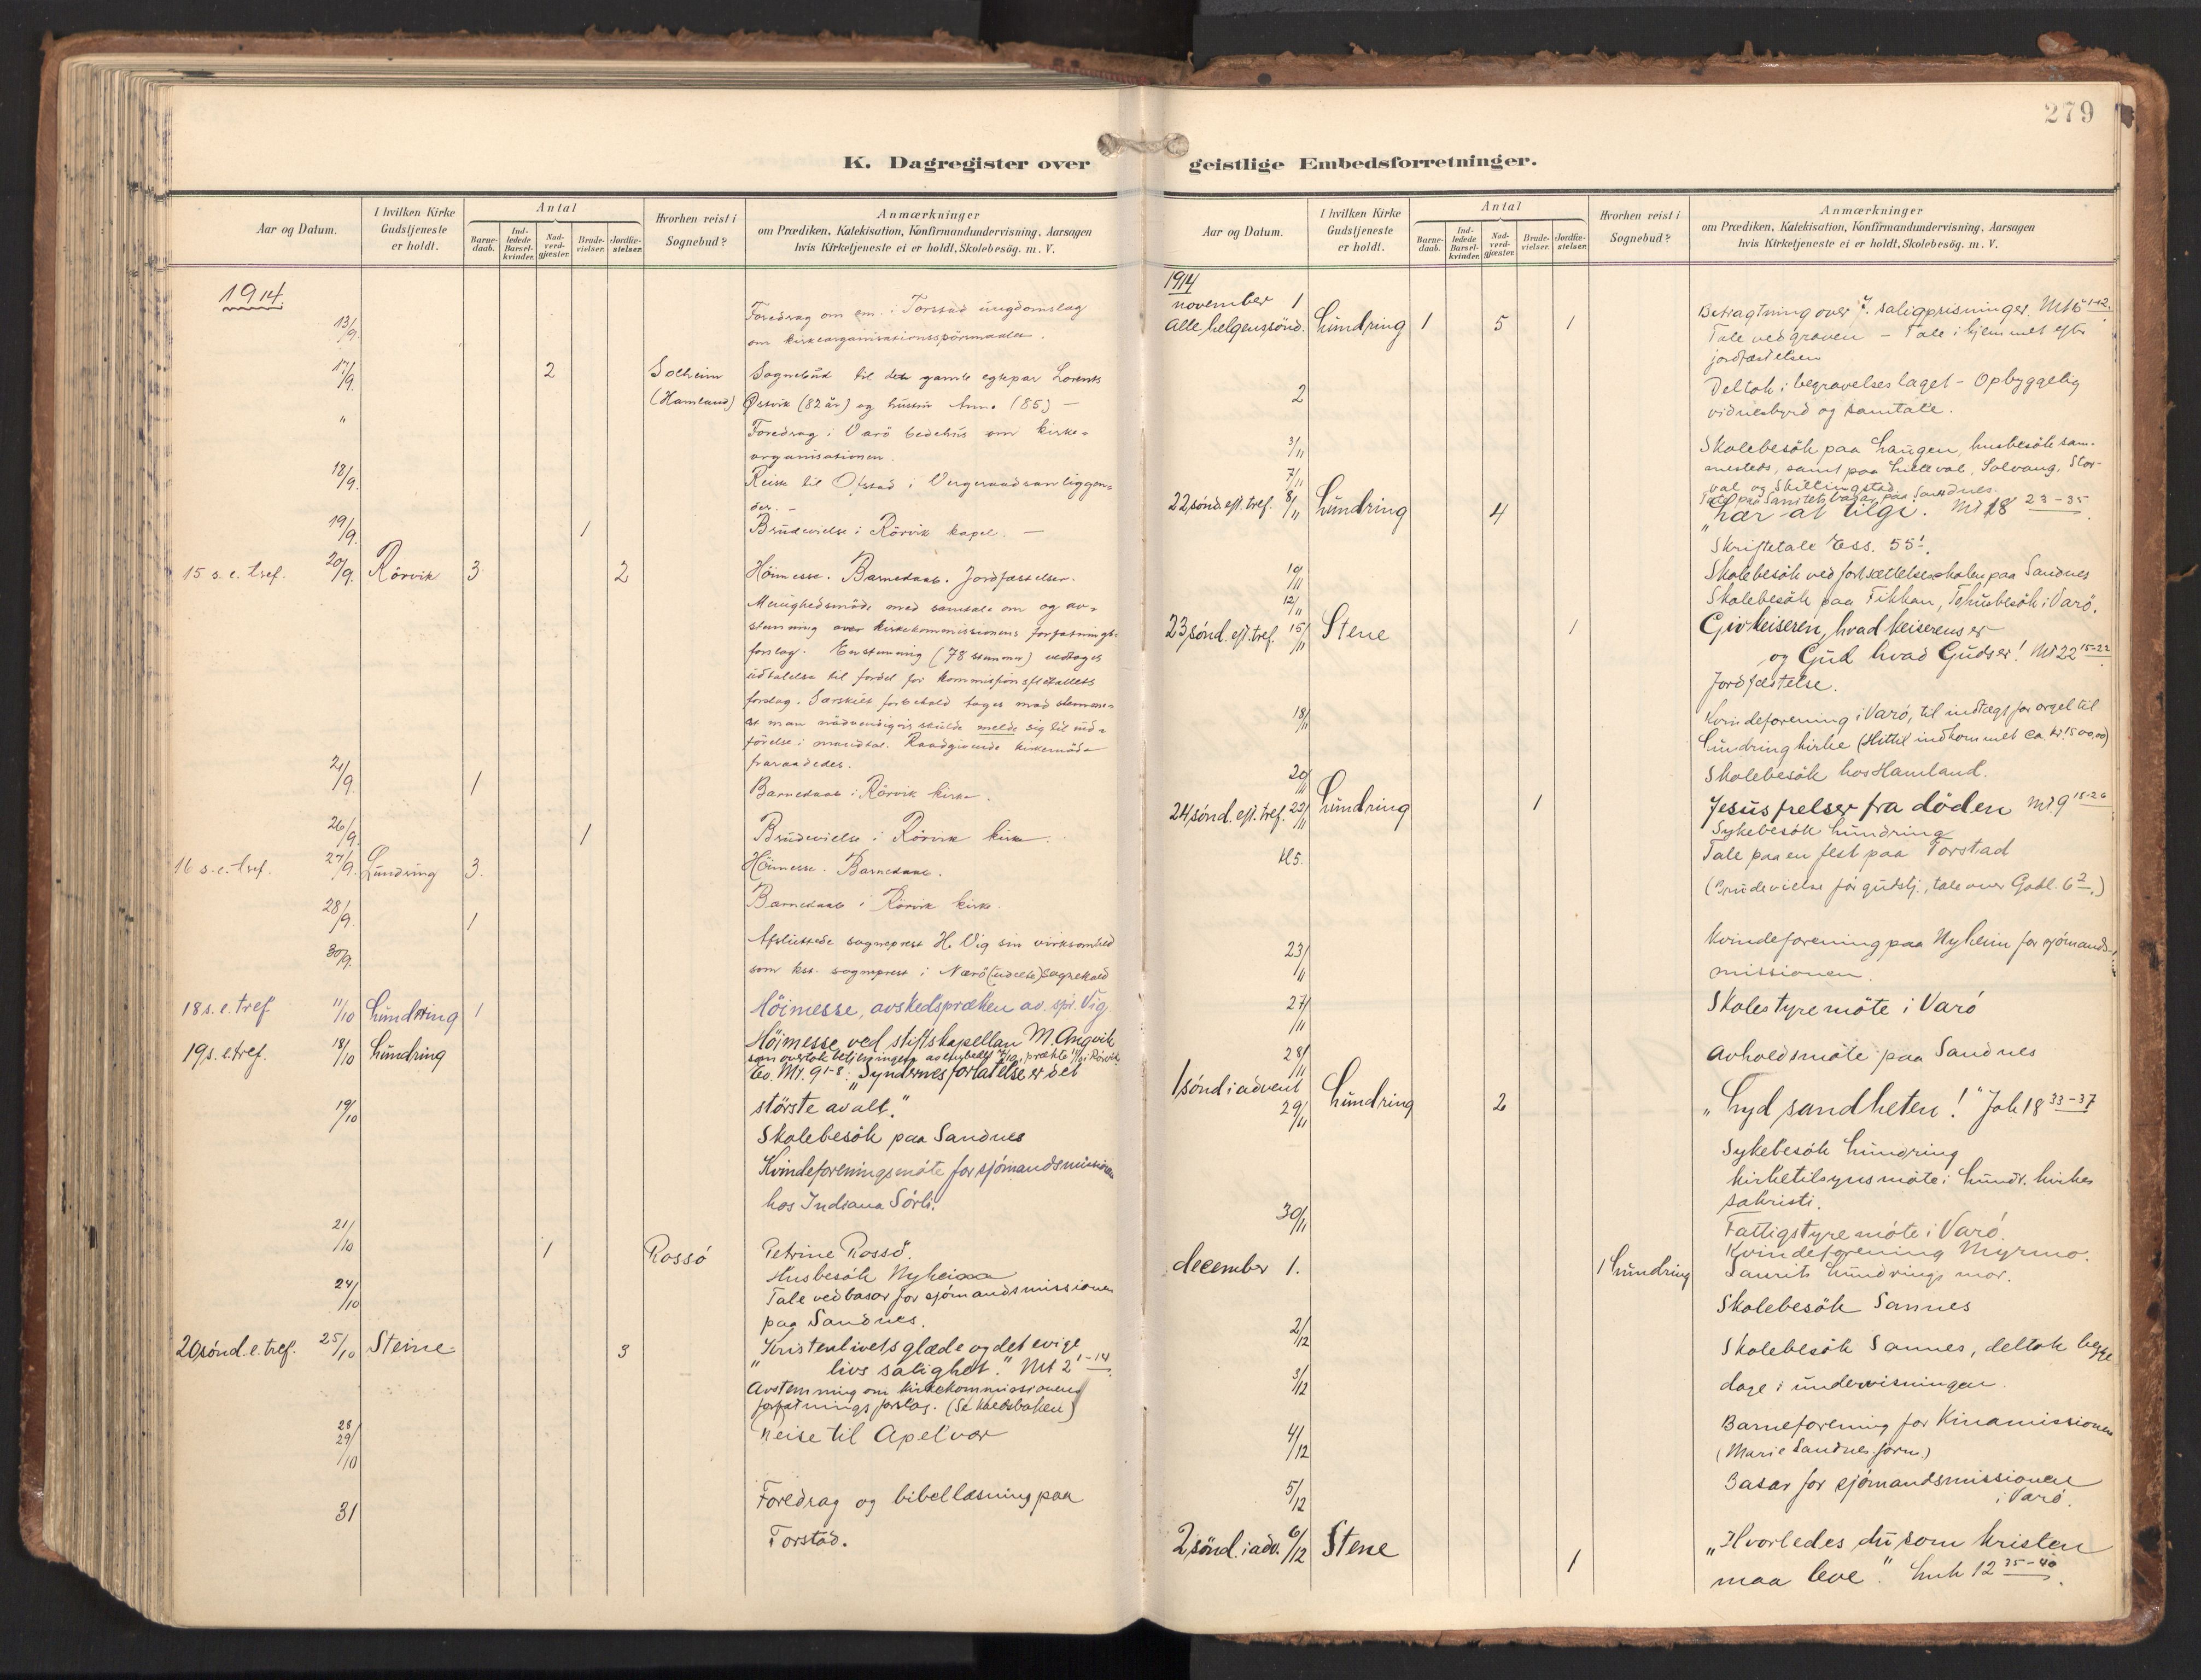 279
K. Dagregister over geistlige Embedsforretninger.
Aar og Datum.
I hvilken Kirke Gudstjeneste er holdt.
Antal
Barne-daab.
Ind-ledede Barsel-kvinder.
Nad-verd-gjæster.
Brude-vielser.
Jordfæ-stelser.
Hvorhen reist i Sognebud?
Anmærkninger
om Prædiken, Katekisation, Konfirmandundervisning, Aarsagen
hvis Kirketjeneste ei er holdt, Skolebesög. m. V.
1914.
13/9. Foredrag om em. i Torstad ungdomslag
om kirkeorganisationsspörsmaalet.
17/9. 2 Solheim Sognebud til det gamle egtepar Lorents
(Hamland) Østvik (82 år) og hustru Anna (85) —
" Foredrag i Varö bedehus om kirke-
organisationen.
18/9. Reise til Ofstad i Vergeraadsanliggen-
der. —
19/9. 1 Brudevielse i Rörvik kapel. —
15 s. e. tref. 20/9. Rörvik 3 2 Höimesse. Barnedaab. Jordfæstelser.
Menighedsmöde med samtale om og av-
stemning over kirkekommissionens forfatnings-
forslag. Enstemmig (78 stemmer) vedtages
udtalelse til fordel for kommissionsflertallets
forslag. Særskilt forbehold toges mod
at man nödvendigvis skulde melde sig til ind-
förelse i mandtal. Raadgivende kirkemöde
fraraadedes.
21/9. 1 Barnedaab i Rörvik kirke.
26/9. 1 Brudevielse i Rörvik kirke.
16 s. e. tref. 27/9. Lundring 3. Höimesse. Barnedaab.
28/9. 1 Barnedaab i Rörvik kirke.
30/9. Afsluttede sogneprest H. Vig sin virksomhed
som kst. sogneprest i Nærö sognekald
18 s. e. tref 11/10 Lundring 1 Höimesse, avskedspræken av spr. Vig
19 s. e. tref. 18/10 Lundring Höimesse ved stiftskapellan M. Angvik
som overtok betjeningen av embedet
Ev. Mt. 9 1-8: "Syndernes forlatelse er det
störste av alt."
19/10 Skolebesök paa Sandnes
Kvindeforeningsmöte for sjömandsmissionen
hos Indiana Sörli.
21/10 1 Rossö Petrine Rossö.
Husbesök Nyheim
24/10 Tale ved basar for sjömandsmissionen
paa Sandnes.
20 sönd. e. tref. 25/10 Steine 3 "Kristenlivets glæde og det evige
livs salighet." Mt 2 1-14.
Avstemning om kirkekommissionens
forfatningsforslag. (Se kaldsboken)
28 29/10 Reise til Apelvær
31 Foredrag og bibellæsning paa
Torstad.
Aar og Datum.
I hvilken Kirke Gudstjeneste er holdt.
Antal
Barne-daab.
Ind-ledede Barsel-kvinder.
Nad-verd-gjæster.
Brude-vielser.
Jordfæ-stelser.
Hvorhen reist i Sognebud?
Anmærkninger
om Prædiken, Katekisation, Konfirmandundervisning, Aarsagen
hvis Kirketjeneste ei er holdt, Skolebesög. m. V.
1914
november 1
Alle helgens sönd. Lundring 1 5 1 Betragtning over J. saligprisninger. Mt 5 1-12.
Tale ved graven – Tale i hjemmet efter
jordfæstelsen
2 Deltok i begravelseslaget – Opbyggelig
vidnesbyrd og samtale.
3/11 Skolebesök paa Haugen, husbesök sam-
mesteds, samt paa Lilleval, Solvang, Stor-
val og Skillingstad.
7/11 Tale paa Sanitetsbasar paa Sandnes.
22 sönd. eft. tref. 8/11 Lundring 4 "Lær at tilgi. Mt 18 23-35.
Skriftetale Ess. 55 1.
10/11 Skolebesök ved fortsættelsesskolen paa Sandnes
12/11 Skolebesök paa Fikkan, husbesök i Varö.
23 sönd. eft. tref. 15/11 Stene 1 Giv keiseren, hvad keiserens er
og Gud hvad Guds er! Mt 22 15-22.
Jordfæstelse.
18/11 Kvindeforening i Varö, til indtægt for orgel til
Lundring kirke (Hittil indkommet ca. kr. 1500,00)
20/11 Skolebesök hos Hamland.
24 sönd. eft. tref. 22/11 Lundring 1 Jesus frelser fra döden Mt 9 18-26
Sykebesök Lundring
Tale paa en fest paa Torstad
(Brudevielse før gudstj., tale over Gal. 6 2.)
23/11 Kvindeforening paa Nyheim for sjömands-
missionen.
27/11 Skolestyremöte i Varö
28/11 Avholdsmöte paa Sandnes
1 sönd i advent 29/11 Lundring 2 "Lyd sandheten!" Joh 18 33-37
Sykebesök Lundring
Kirketilsynsmöte i Lundr. kirkes
sakristi.
30/11 Fattigstyremöte i Varö.
Kvindeforening Myrmo.
december 1. 1 Lundring Laurits Lundrings mor.
Skolebesök Sannes
2/12 Skolebesök Sannes, deltok begge
dage i undervisningen.
3/12 Barneforening for Kinamissionen
(Marie Sandnes form.)
4/12
5/12 Basar for sjömandsmissionen
i Varö.
2 sönd. i adv. 6/12 Stene 1 "Hvorledes du som kristen
maa leve". Luk 12 35-40.